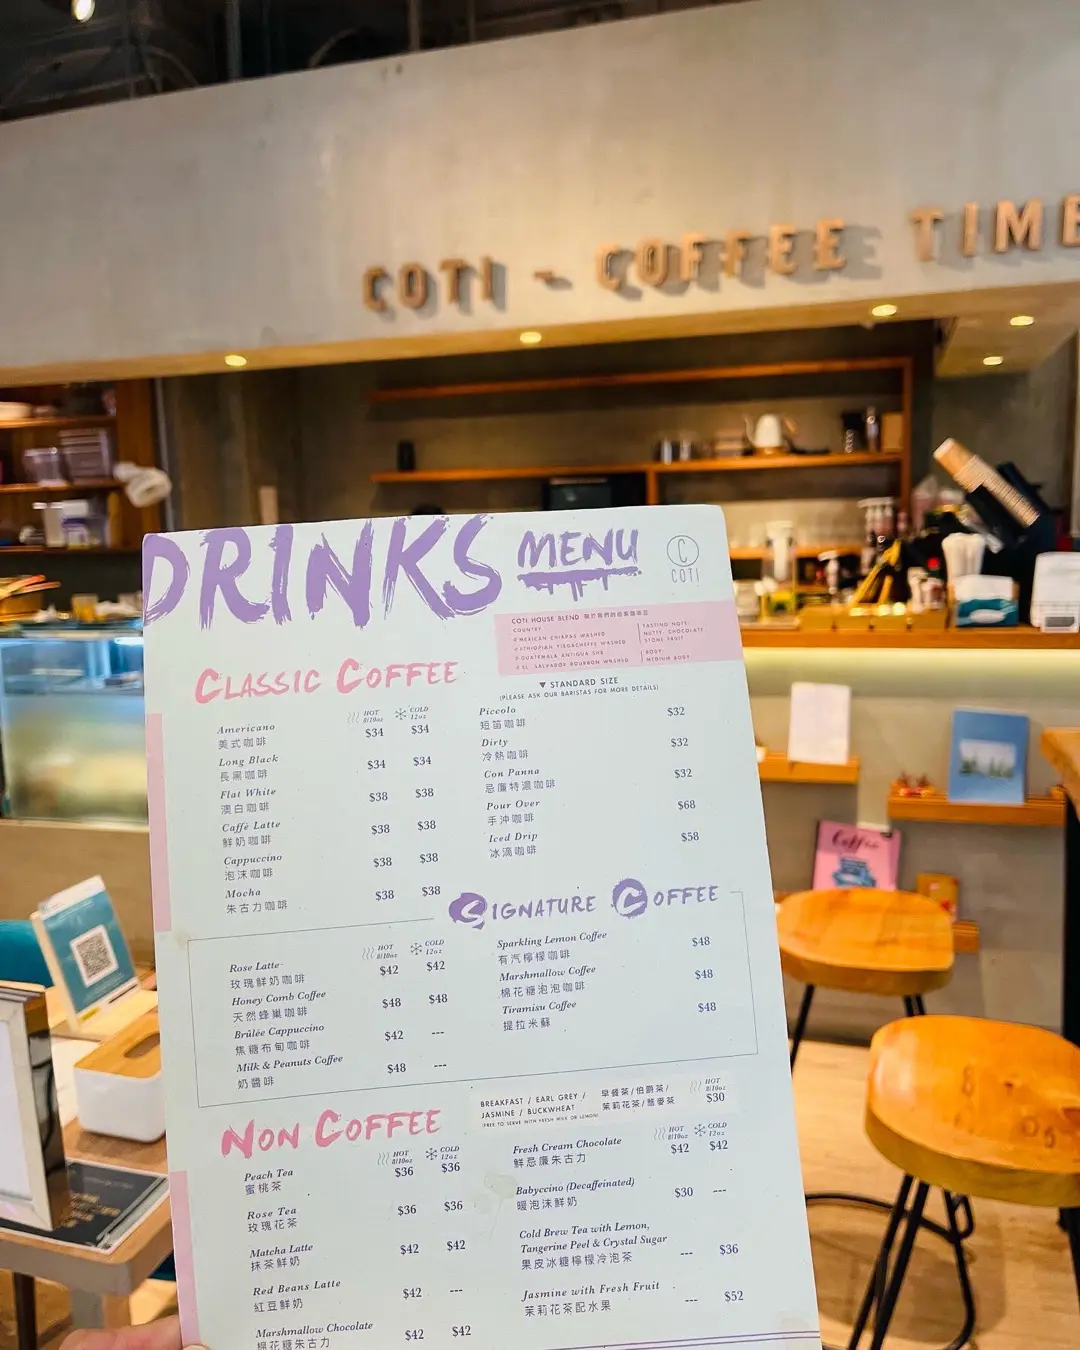 COTI - COFFEE TIME
DRINKS MENU
C
COTI
COTI HOUSE BLEND
COUNTRY
#MEXICAN CHIAPAS WASHED
#ETHIOPIAN YIRGACHEFFE WASHED
#GUATEMALA ANTIGUA SHB
#EL SALVADOR BOURBON WASHED
TASTING NOTE:
NUTTY, CHOCOLATE,
STONE FRUIT
BODY:
MEDIUM BODY
CLASSIC COFFEE
HOT 8/10oz COLD 12oz
Americano $34 $34
美式咖啡
Long Black $34 $34
長黑咖啡
Flat White $38 $38
澳白咖啡
Caffè Latte $38 $38
鮮奶咖啡
Cappuccino $38 $38
泡沫咖啡
Mocha $38 $38
朱古力咖啡
▼ STANDARD SIZE
(PLEASE ASK OUR BARISTAS FOR MORE DETAILS)
Piccolo $32
短笛咖啡
Dirty $32
冷熱咖啡
Con Panna $32
忌廉特濃咖啡
Pour Over $68
手沖咖啡
Iced Drip $58
冰滴咖啡
SIGNATURE COFFEE
HOT 8/10oz COLD 12oz
Rose Latte $42 $42
玫瑰鮮奶咖啡
Honey Comb Coffee $48 $48
天然蜂巢咖啡
Brûlée Cappuccino $42 ---
焦糖布甸咖啡
Milk & Peanuts Coffee $48 ---
奶醬啡
Sparkling Lemon Coffee $48
有汽檸檬咖啡
Marshmallow Coffee $48
棉花糖泡泡咖啡
Tiramisu Coffee $48
提拉米蘇
NON COFFEE
HOT 8/10oz COLD 12oz
Peach Tea $36 $36
蜜桃茶
Rose Tea $36 $36
玫瑰花茶
Matcha Latte $42 $42
抹茶鮮奶
Red Beans Latte $42 ---
紅豆鮮奶
Marshmallow Chocolate $42 $42
棉花糖朱古力
BREAKFAST / EARL GREY / 早餐茶/伯爵茶/ HOT 8/10oz
JASMINE / BUCKWHEAT 茉莉花茶/蕎麥茶 $30
(FREE TO SERVE WITH FRESH MILK OR LEMON)
HOT 8/10oz COLD 12oz
Fresh Cream Chocolate $42 $42
鮮忌廉朱古力
Babyccino (Decaffeinated) $30 ---
暖泡沫鮮奶
Cold Brew Tea with Lemon,
Tangerine Peel & Crystal Sugar --- $36
果皮冰糖檸檬冷泡茶
Jasmine with Fresh Fruit --- $52
茉莉花茶配水果
Coffee